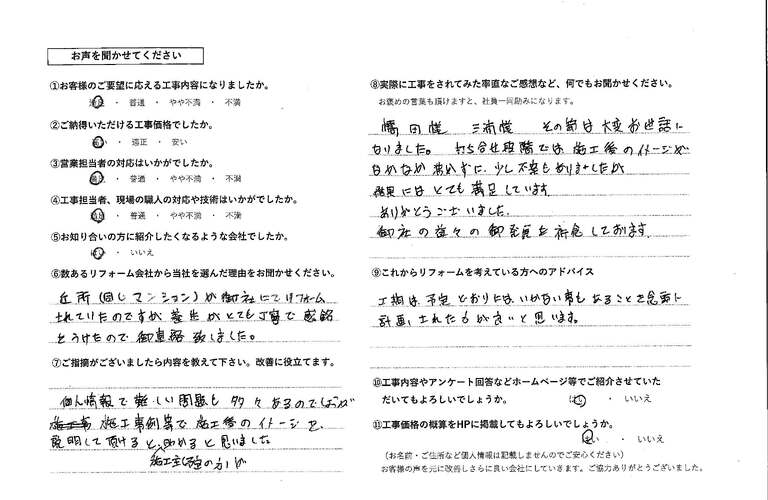 お声を聞かせてください
①お客様のご要望に応える工事内容になりましたか。
満足 ・ 普通 ・ やや不満 ・ 不満
②ご納得いただける工事価格でしたか。
高い ・ 適正 ・ 安い
③営業担当者の対応はいかがでしたか。
満足 ・ 普通 ・ やや不満 ・ 不満
④工事担当者、現場の職人の対応や技術はいかがでしたか。
満足 ・ 普通 ・ やや不満 ・ 不満
⑤お知り合いの方に紹介したくなるような会社でしたか。
はい ・ いいえ
⑥数あるリフォーム会社から当社を選んだ理由をお聞かせください。
近所(同じマンション)が御社にてリフォーム
されていたのですが 養生がとても丁寧で感銘
をうけたので 御連絡 致しました。
⑦ご指摘がございましたら内容を教えて下さい。改善に役立てます。
個人情報で難しい問題も多々あるのでしょうが
施工事例等で施工後のイメージを
説明して頂けると、助かると思いました
⑧実際に工事をされてみた率直なご感想など、何でもお聞かせください。
お褒めの言葉も頂けますと、社員一同励みになります。
様 三浦様 その節は大変お世話に
なりました。打ち合せ段階では施工後のイメージが
なかなかわかずに、少し不安もありましたが
結果にはとても満足しています
ありがとうございました。
御社の益々の御発展を祈念しております。
⑨これからリフォームを考えている方へのアドバイス
工期は予定どおりにはいかない事もあることを念頭に
計画された方が良いと思います。
⑩工事内容やアンケート回答などホームページ等でご紹介させていた
だいてもよろしいでしょうか。 はい ・ いいえ
⑪工事価格の概算をHPに掲載してもよろしいでしょうか。
はい ・ いいえ
(お名前・ご住所など個人情報は記載しませんのでご安心ください)
お客様の声を元に改善しさらに良い会社にしていきます。ご協力ありがとうございました。